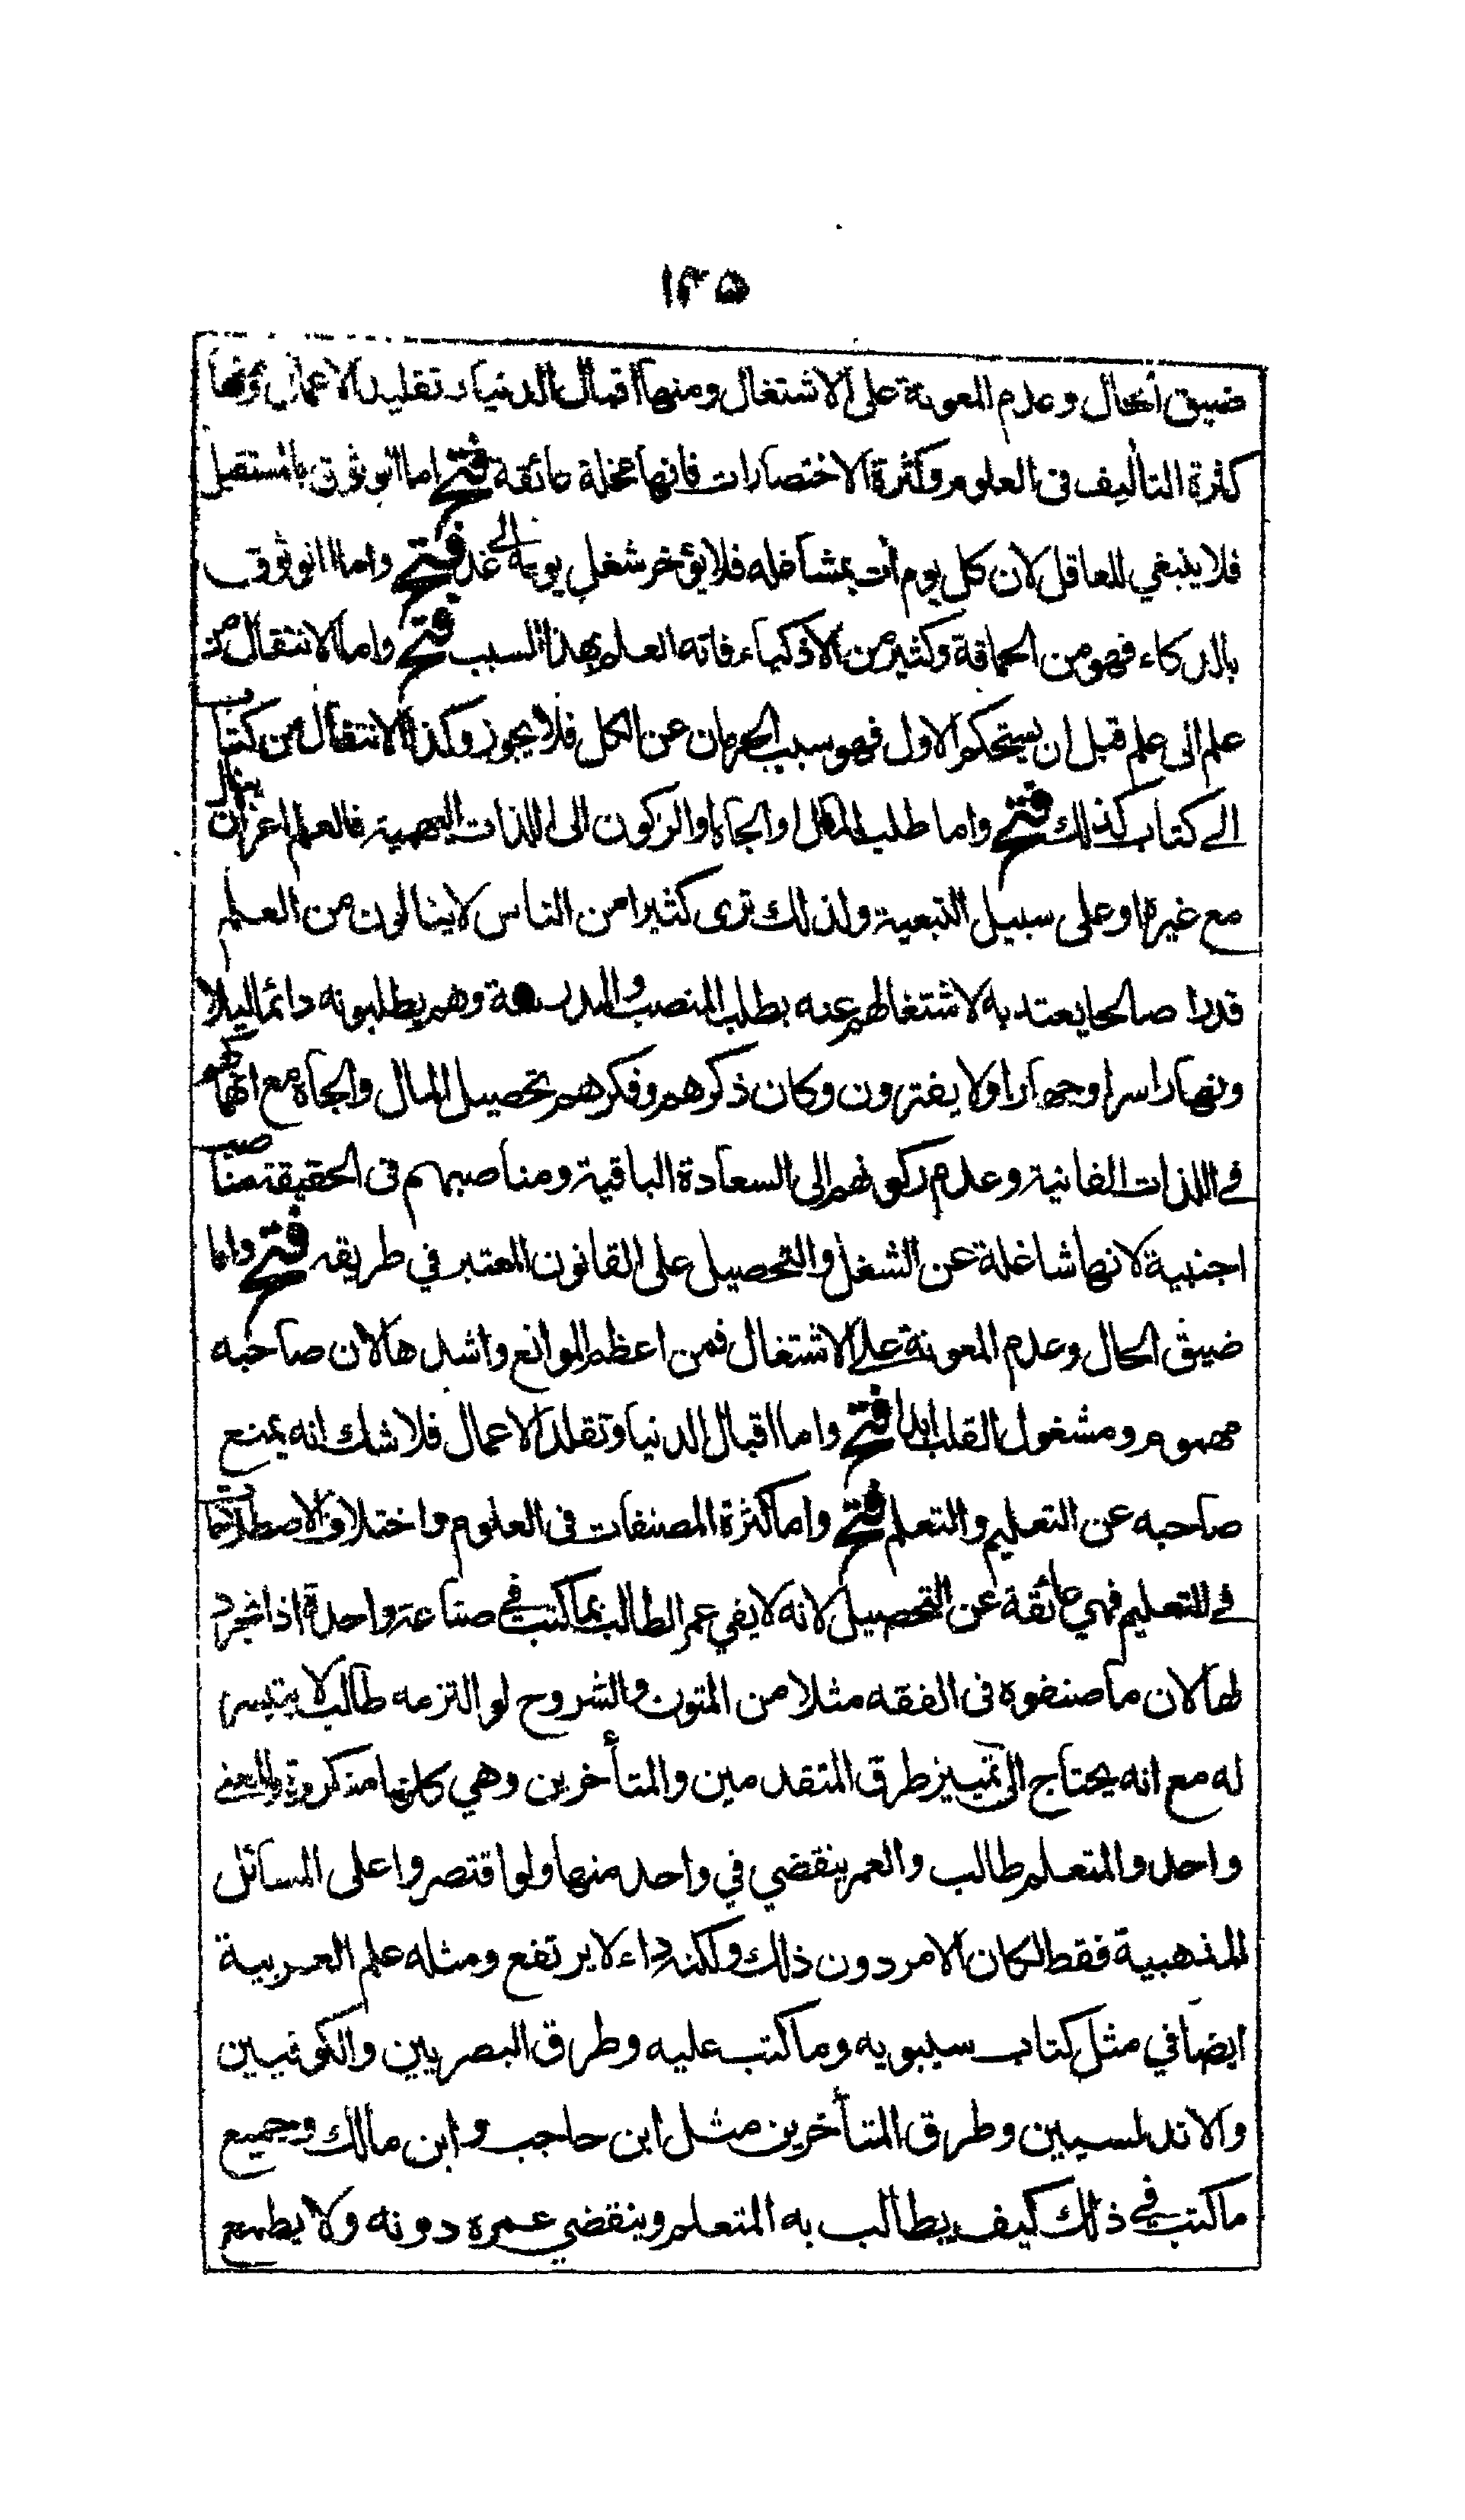 ١٣٥
ضيق الحال وعدم المعونة على الاشتغال ومنها اقبال الدنيا وتقليد الاعمال ومنها
كثرة التأليف في العلوم وكثرة الاختصارات فانها مخلة عائقة فتح اما الوثوق بالمستقبل
فلا ينبغي للعاقل لان كل يوم آت بمشاغله فلا يؤخر شغل يومه الى غد فتح واما الوثوق
بالذكاء فهو من الحماقة وكثير من الاذكياء فاته العلم بهذا السبب فتح واما الانتقال من
علم الى علم قبل ان يستحكم الاول فهو سبب الحرمان عن الكل فلا يجوز وكذا الانتقال من كتاب
الى كتاب كذلك فتح واما طلب المال والجاه والركون الى اللذات البهيمية فالعلم اعز ان ينال
مع غيره او على سبيل التبعية ولذلك ترى كثيرا من الناس لا ينالون من العلم
قدرا صالحا يعتد به لاشتغالهم عنه بطلب المنصب والمدرسة وهم يطلبونه دائما ليلا
ونهارا سرا وجهارا ولا يفترون وكان ذكرهم وفكرهم تحصيل المال والجاه مع انهماكهم
في اللذات الفانية وعدم ركونهم الى السعادة الباقية ومناصبهم في الحقيقة مناصب
اجنبية لانها شاغلة عن الشغل والتحصيل على القانون المعتبر في طريقه فتح واما
ضيق الحال وعدم المعونة على الاشتغال فمن اعظم الموانع واشدها لان صاحبه
مهموم ومشغول القلب ابدا فتح واما اقبال الدنيا وتقلد الاعمال فلا شك انه يمنع
صاحبه عن التعليم والتعلم فتح واما كثرة المصنفات في العلوم واختلاف الاصطلاحات
في التعليم فهي عائقة عن التحصيل لانه لا يفي عمر الطالب بما كتب في صناعة واحدة اذا تجرد
لها لان ما صنفوه في الفقه مثلا من المتون والشروح لو التزمه طالب لا يتيسر
له مع انه يحتاج الى تمييز طرق المتقدمين والمتأخرين وهي كلها متكررة والمعنى
واحد والمتعلم طالب والعمر ينقضي في واحد منها ولو اقتصروا على المسائل
المذهبية فقط لكان الامر دون ذلك ولكنه داء لا يرتفع ومثله علم العربية
ايضا في مثل كتاب سيبويه وما كتب عليه وطرق البصريين والكوفيين
والاندلسيين وطرق المتأخرين مثل ابن حاجب وابن مالك وجميع
ما كتب في ذلك كيف يطالب به المتعلم وينقضي عمره دونه ولا يطمع